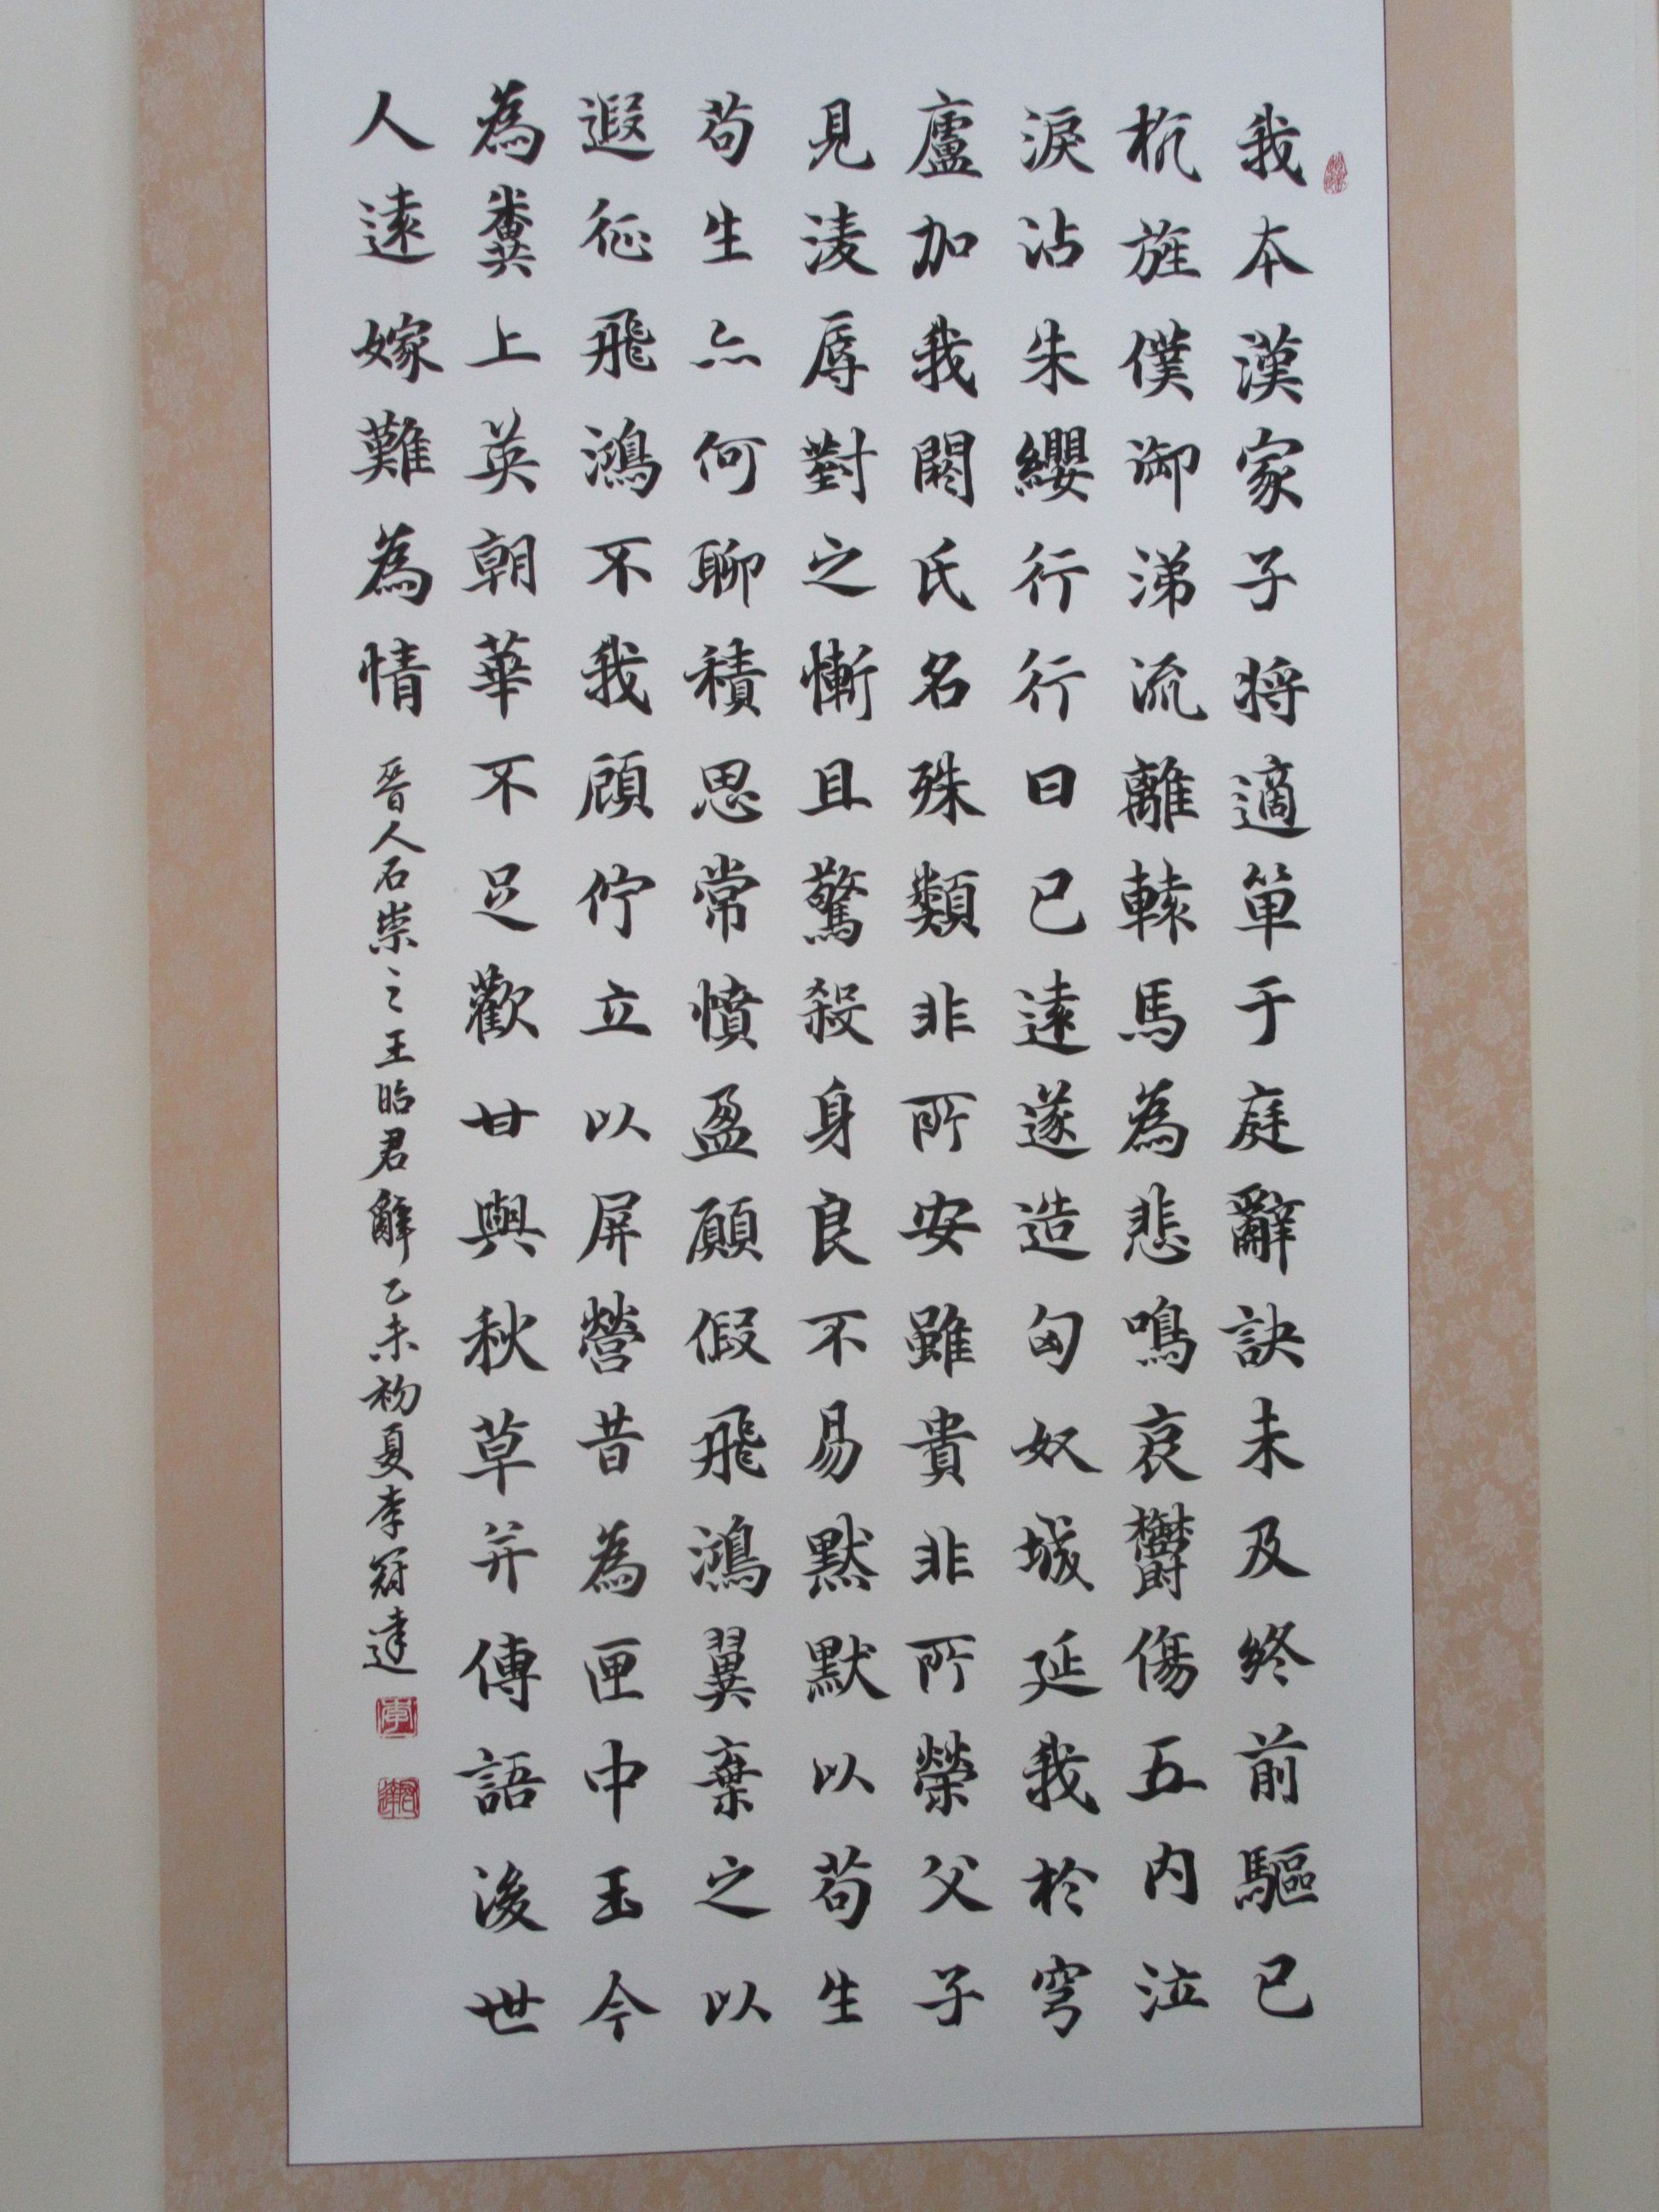 我本漢家子将適單于庭辭訣未及終前驅已
抗旌僕御涕流離轅馬為悲鳴哀鬱傷五内泣
淚沾朱纓行行日已遠遂造匈奴城延我於穹
廬加我閼氏名殊類非所安雖貴非所榮父子
見淩辱對之慚且驚殺身良不易默默以苟生
苟生亦何聊積思常憤盈願假飛鴻翼棄之以
遐征飛鴻不我顧佇立以屏營昔為匣中玉今
為糞上英朝華不足歡甘與秋草并傳語後世
人遠嫁難為情
晉人石崇之王昭君辭乙未初夏李冠達